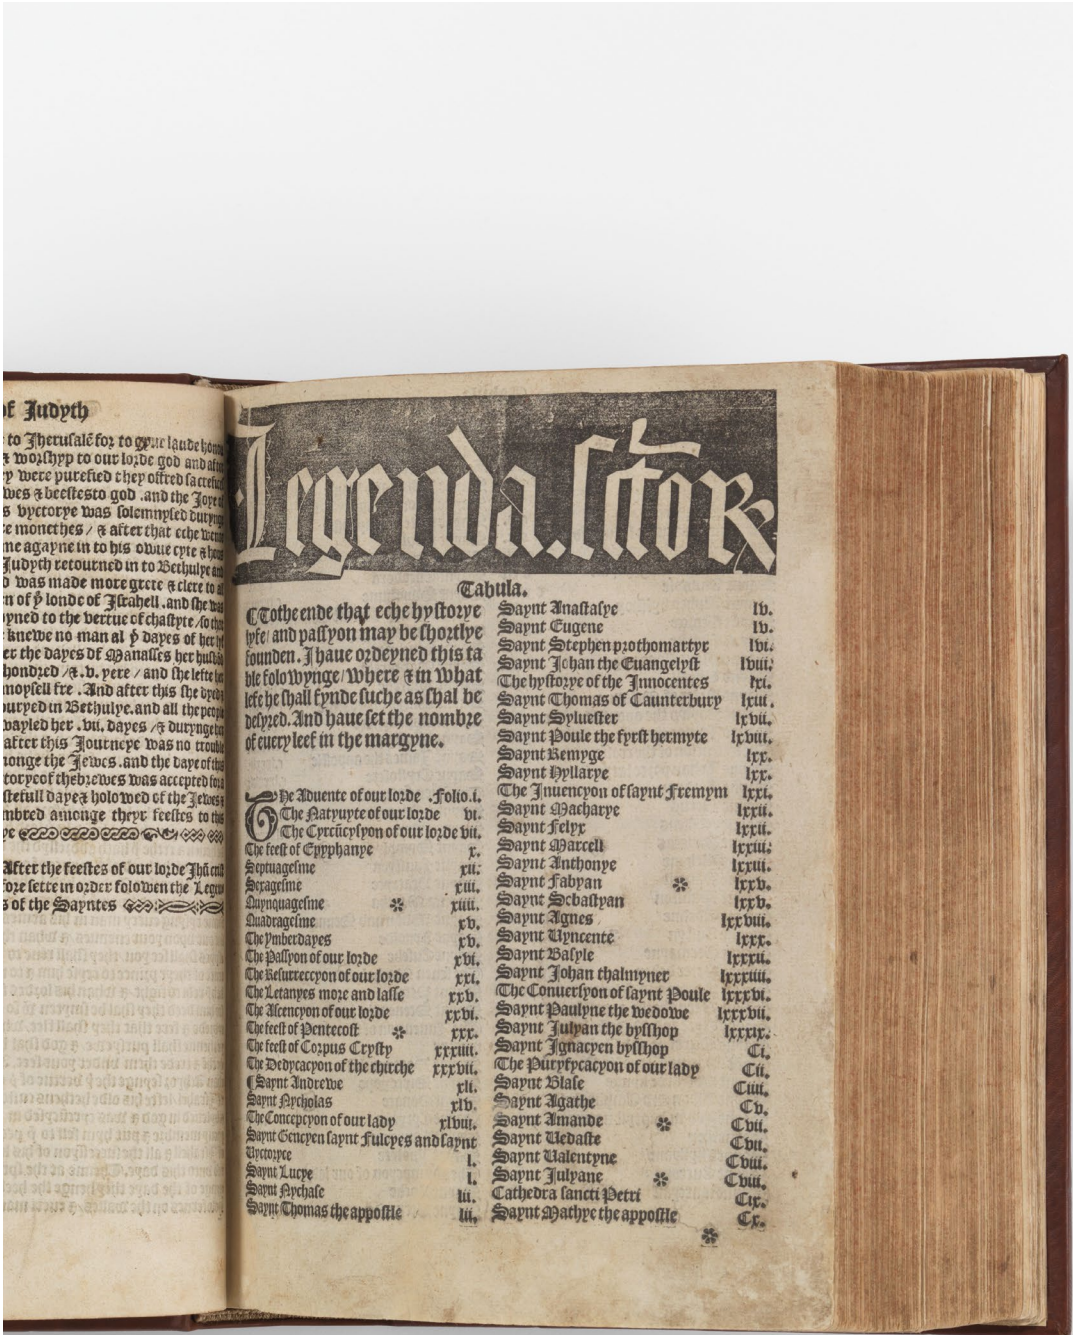 of Judyth
to Jherusalē for to gyue laude hono
& worshyp to our lorde god and after
ey were purefied they offred sacrefic
wes & beestes to god .and the Joye of
s vyctorye was solemnysed durynge
re monethes / & after that eche wente
me agayne in to his owne cyte &
Judyth retourned in to Bethulye and
d was made more grete & clere to all
n of yͤ londe of Israhell .and she was
yned to the vertue of chastyte /so that
knewe no man al yͤ dayes of her lyf
er the dayes of Manasses her husbā
hondred /&.v. yere / and she lefte her
moysell fre . And after this she dyed &
buryed in Bethulye.and all the people
wayled her .vii. dayes /& durynge her
after this Journeye was no trouble
monge the Jewes.and the daye of this
ctorye of thebrewes was accepted for a
festefull daye & holowed of the Jewes &
nombred amonge theyr feestes to this
ye
After the feestes of our lorde Jhū
fore sette in order folowen the Legen
s of the Sayntes
Legenda.sctōꝝ
Tabula.
¶To the ende that eche hystorye
lyfe/ and passyon may be shortlye
founden. I haue ordeyned this ta
ble folowynge/ where & in what
lefe he shall fynde suche as shal be
desyred. And haue set the nombre
of euery leef in the margyne.
The Aduente of our lorde .Folio.i.
The Natyuyte of our lorde vi.
The Cyrcūcysyon of our lorde vii.
The feest of Epyphanye x.
Septuagesme xii.
Sexagesme xiii.
Quynquagesme xiiii.
Quadragesme xv.
The ymberdayes xv.
The Passyon of our lorde xvi.
The Resurreccyon of our lorde xxi.
The Letanyes more and lasse xxv.
The Ascencyon of our lorde xxvi.
The feest of Pentecost xxx.
The feest of Corpus Crysty xxxiiii.
The Dedycacyon of the chirche xxxvii.
¶Saynt Andrewe xli.
Saynt Nycholas xlv.
The Concepcyon of our lady xlviii.
Saynt Gencyen saynt Fulcyes and saynt
Vyctoryce l.
Saynt Lucye l.
Saynt Nychase lii.
Saynt Thomas the appostle lii.
Saynt Anastasye lv.
Saynt Eugene lv.
Saynt Stephen prothomartyr lvi.
Saynt Johan the Euangelyst lviii.
The hystorye of the Innocentes lxi.
Saynt Thomas of Caunterbury lxiii.
Saynt Syluester lxvii.
Saynt Poule the fyrst hermyte lxviii.
Saynt Remyge lxx.
Saynt Hyllarye lxx.
The Inuencyon of saynt Fremym lxxi.
Saynt Macharye lxxii.
Saynt Felyx lxxii.
Saynt Marcell lxxiii.
Saynt Anthonye lxxiii.
Saynt Fabyan lxxv.
Saynt Sebastyan lxxv.
Saynt Agnes lxxviii.
Saynt Vyncente lxxx.
Saynt Basyle lxxxii.
Saynt Johan thalmyner lxxxiiii.
The Conuersyon of saynt Poule lxxxvi.
Saynt Paulyne the wedowe lxxxvii.
Saynt Julyan the bysshop lxxxix.
Saynt Ignacyen bysshop Ci.
The Puryfycacyon of our lady Cii.
Saynt Blase Ciii.
Saynt Agathe Cv.
Saynt Amande Cvii.
Saynt Vedaste Cvii.
Saynt Valentyne Cviii.
Saynt Julyane Cviii.
Cathedra sancti Petri Cix.
Saynt Mathye the appostle Cx.